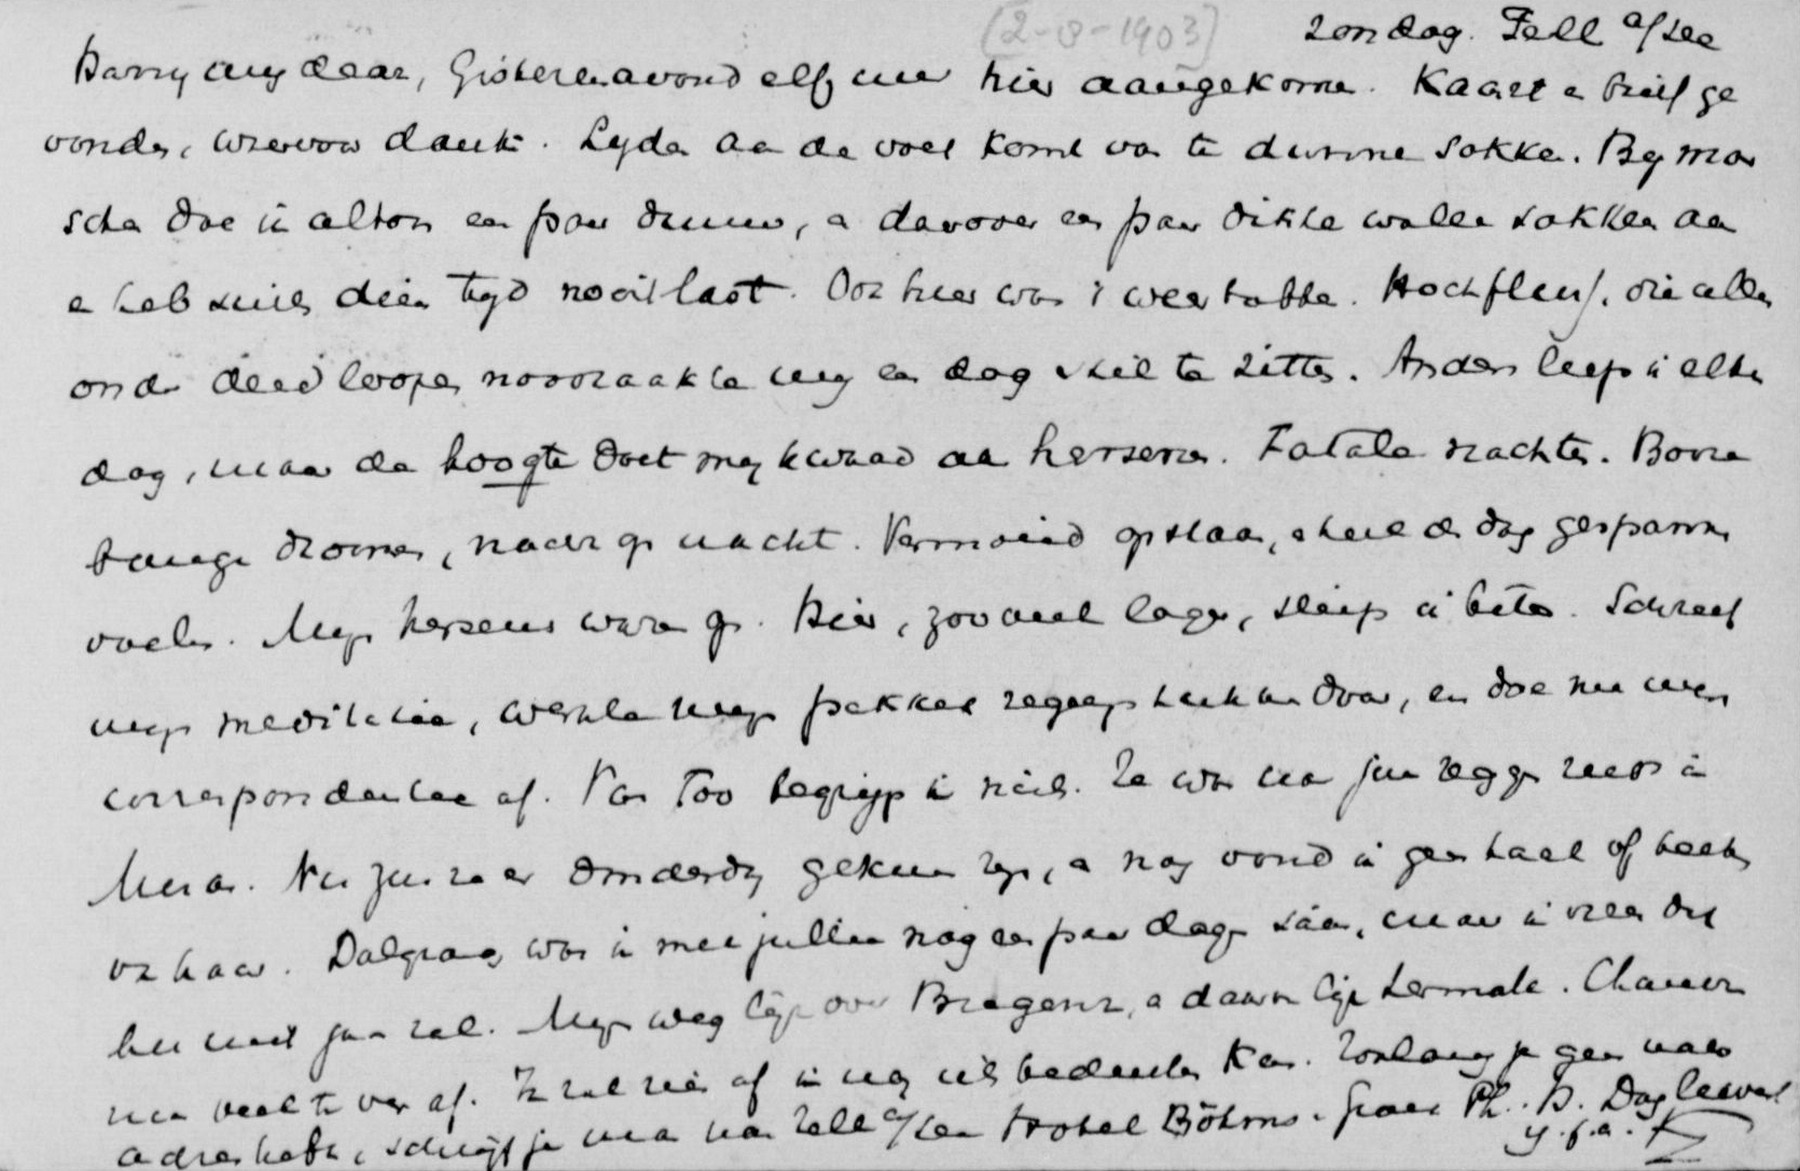 [2-8-1903] Zondag. Zell a/See
Harry my dear, Gisterenavond elf uur hier aangekomen. Kaart en brief ge
vonden, waarvoor dank. Lyden aan de voet komt van te dunne sokken. By mar
schen doe ik altoos een paar dunne, en daarover een paar dikke wollen sokken aan
en heb sinds dien tyd nooit last. Ook hier was 't weer tobben. Hochfleuss. die alles
onder deed loopen noodzaakte my een dag stil te zitten. Anders liep ik elken
dag, maar de hoogte doet my kwaad aan hersens. Fatale nachten. Bovren
bange droomen, nacht op nacht. Vermoeid opstaan, en heel den dag gespannen
voelen. Myn hersens waren op. Hier, zooveel lager, sliep ik beter. Schreef
myn meditatie, werkte myn pakket regeeringstukken door, en doe nu myn
correspondentie af. Van Too begryp ik niets. Ze was naar jou zeggen reeds in
Meran. Nu zou ze er donderdag gekomen zyn, en nog vond ik geen taal of teeken
van haar. Dolgraag was ik met jullie nog een paar dagen saam, maar ik vrees dat
het niet gaan zal. Myn weg ligt over Bregenz, en daarvan ligt Lermate. Chamen
me veel te ver af. Ik zal zien of ik nog iets bedenken kan. Zoolang je geen nader
adres hebt, schryf je maar naar Zell a/See Hotel Böhms. Groet Ph. H. Dag lieverd
y.f.a. K